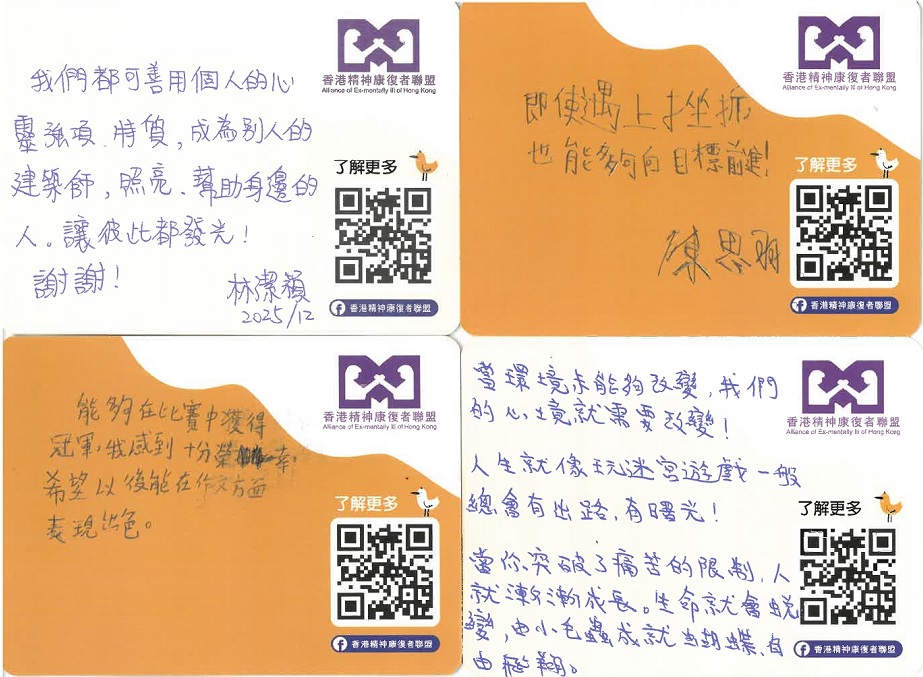 香港精神康復者聯盟
Alliance of Ex-mentally Ill of Hong Kong
我們都可善用個人的心
靈強項、特質,成為別人的
建築師,照亮、幫助身邊的
人。讓彼此都發光!
謝謝!
林潔穎
2025/12
了解更多
香港精神康復者聯盟
香港精神康復者聯盟
Alliance of Ex-mentally Ill of Hong Kong
即使遇上挫折
也能夠向目標前進!
陳思
了解更多
香港精神康復者聯盟
香港精神康復者聯盟
Alliance of Ex-mentally Ill of Hong Kong
能夠在比賽中獲得
冠軍,我感到十分榮幸!
希望以後能在作文方面
表現出色。
了解更多
香港精神康復者聯盟
香港精神康復者聯盟
Alliance of Ex-mentally Ill of Hong Kong
當環境未能夠改變,我們
的心境就需要改變!
人生就像玩迷宮遊戲一般
總會有出路,有曙光!
當你突破了痛苦的限制,人
就漸漸成長。生命就會蛻
變,由小毛蟲成就為蝴蝶,自
由飛翔。
了解更多
香港精神康復者聯盟